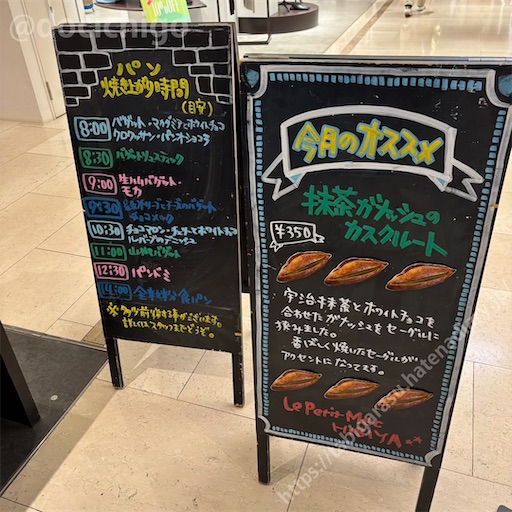 @docchigo
パン
焼き上がり時間
(目安)
8:00 バゲット・マカダミアとホワイトチョコ
クロワッサン・パンオショコラ
8:30 バゲットリュスティック
9:00 生ハムバゲット・
モカ
9:30
10:30
11:00 山サバゲット
12:30 パンドミ
14:00 全粒粉食パン
※多少前後する事がございます。
詳しくはスタッフまでどうぞ。
今月のオススメ
抹茶ガナッシュの
カスクルート
¥350
宇治抹茶とホワイトチョコを
合わせたガナッシュをセーグルに
挟みました。
香ばしく焼いたセーグルが
アクセントになってます。
Le Petit Mec
HIBIYA